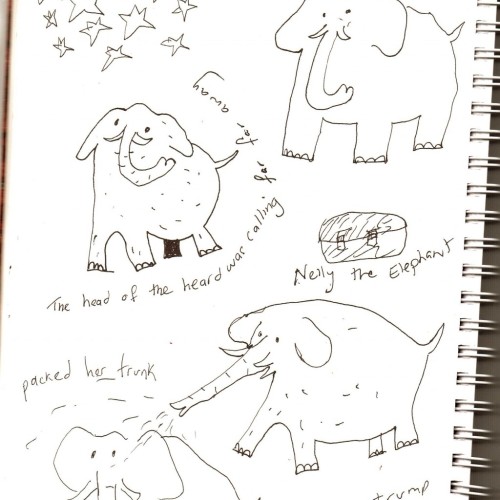 The head of the heard was calling
far far away
Nelly the Elephant
packed her trunk
trump